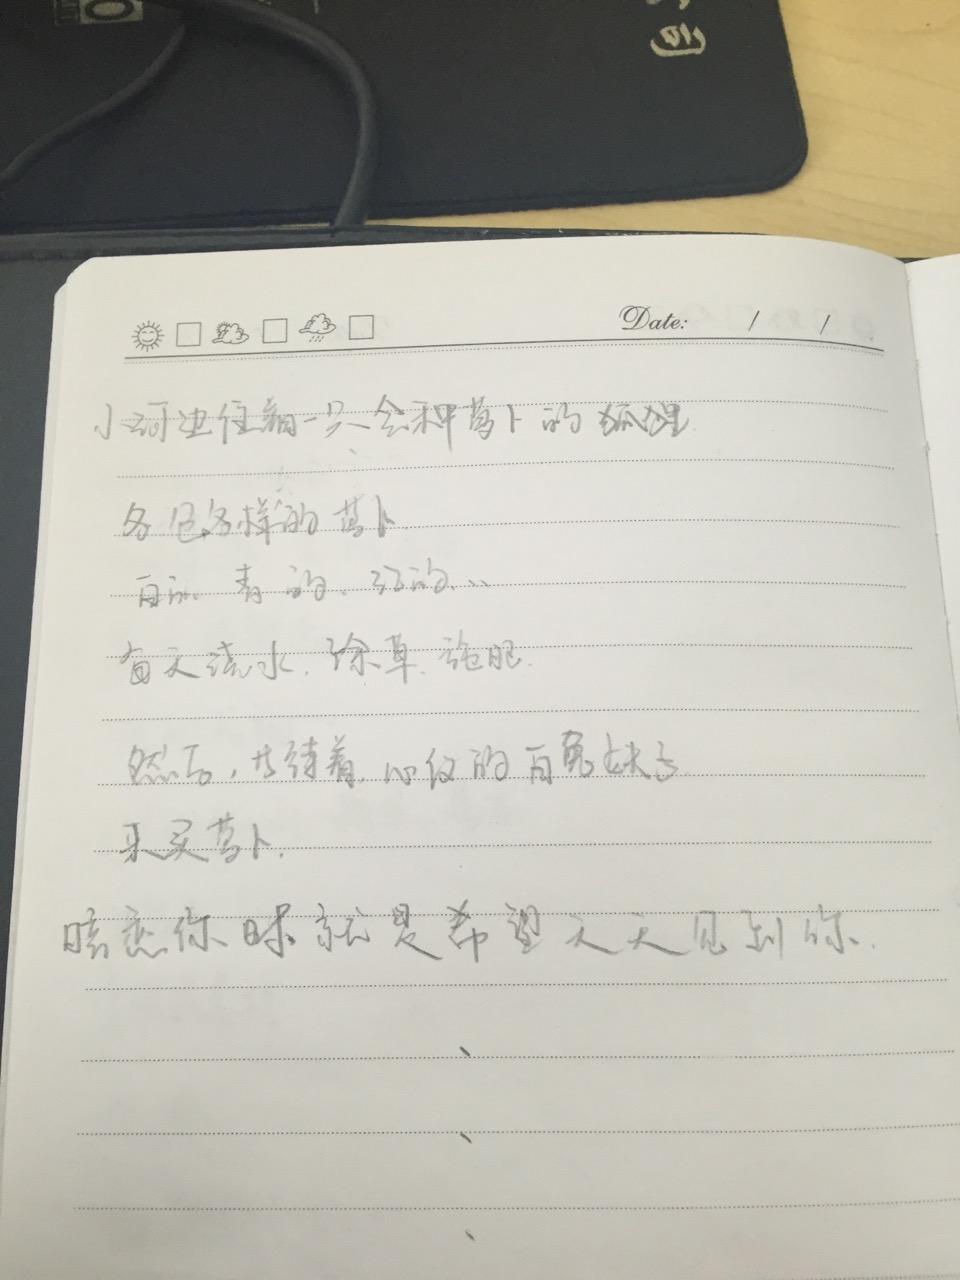 Date: / /
小河边住着一只会种萝卜的狐狸
各色各样的萝卜
白的、青的、红的...
每天浇水.除草.施肥.
然后,等待着,心仪的白兔妹子
来买萝卜.
暗恋你 就是希望天天见到你.